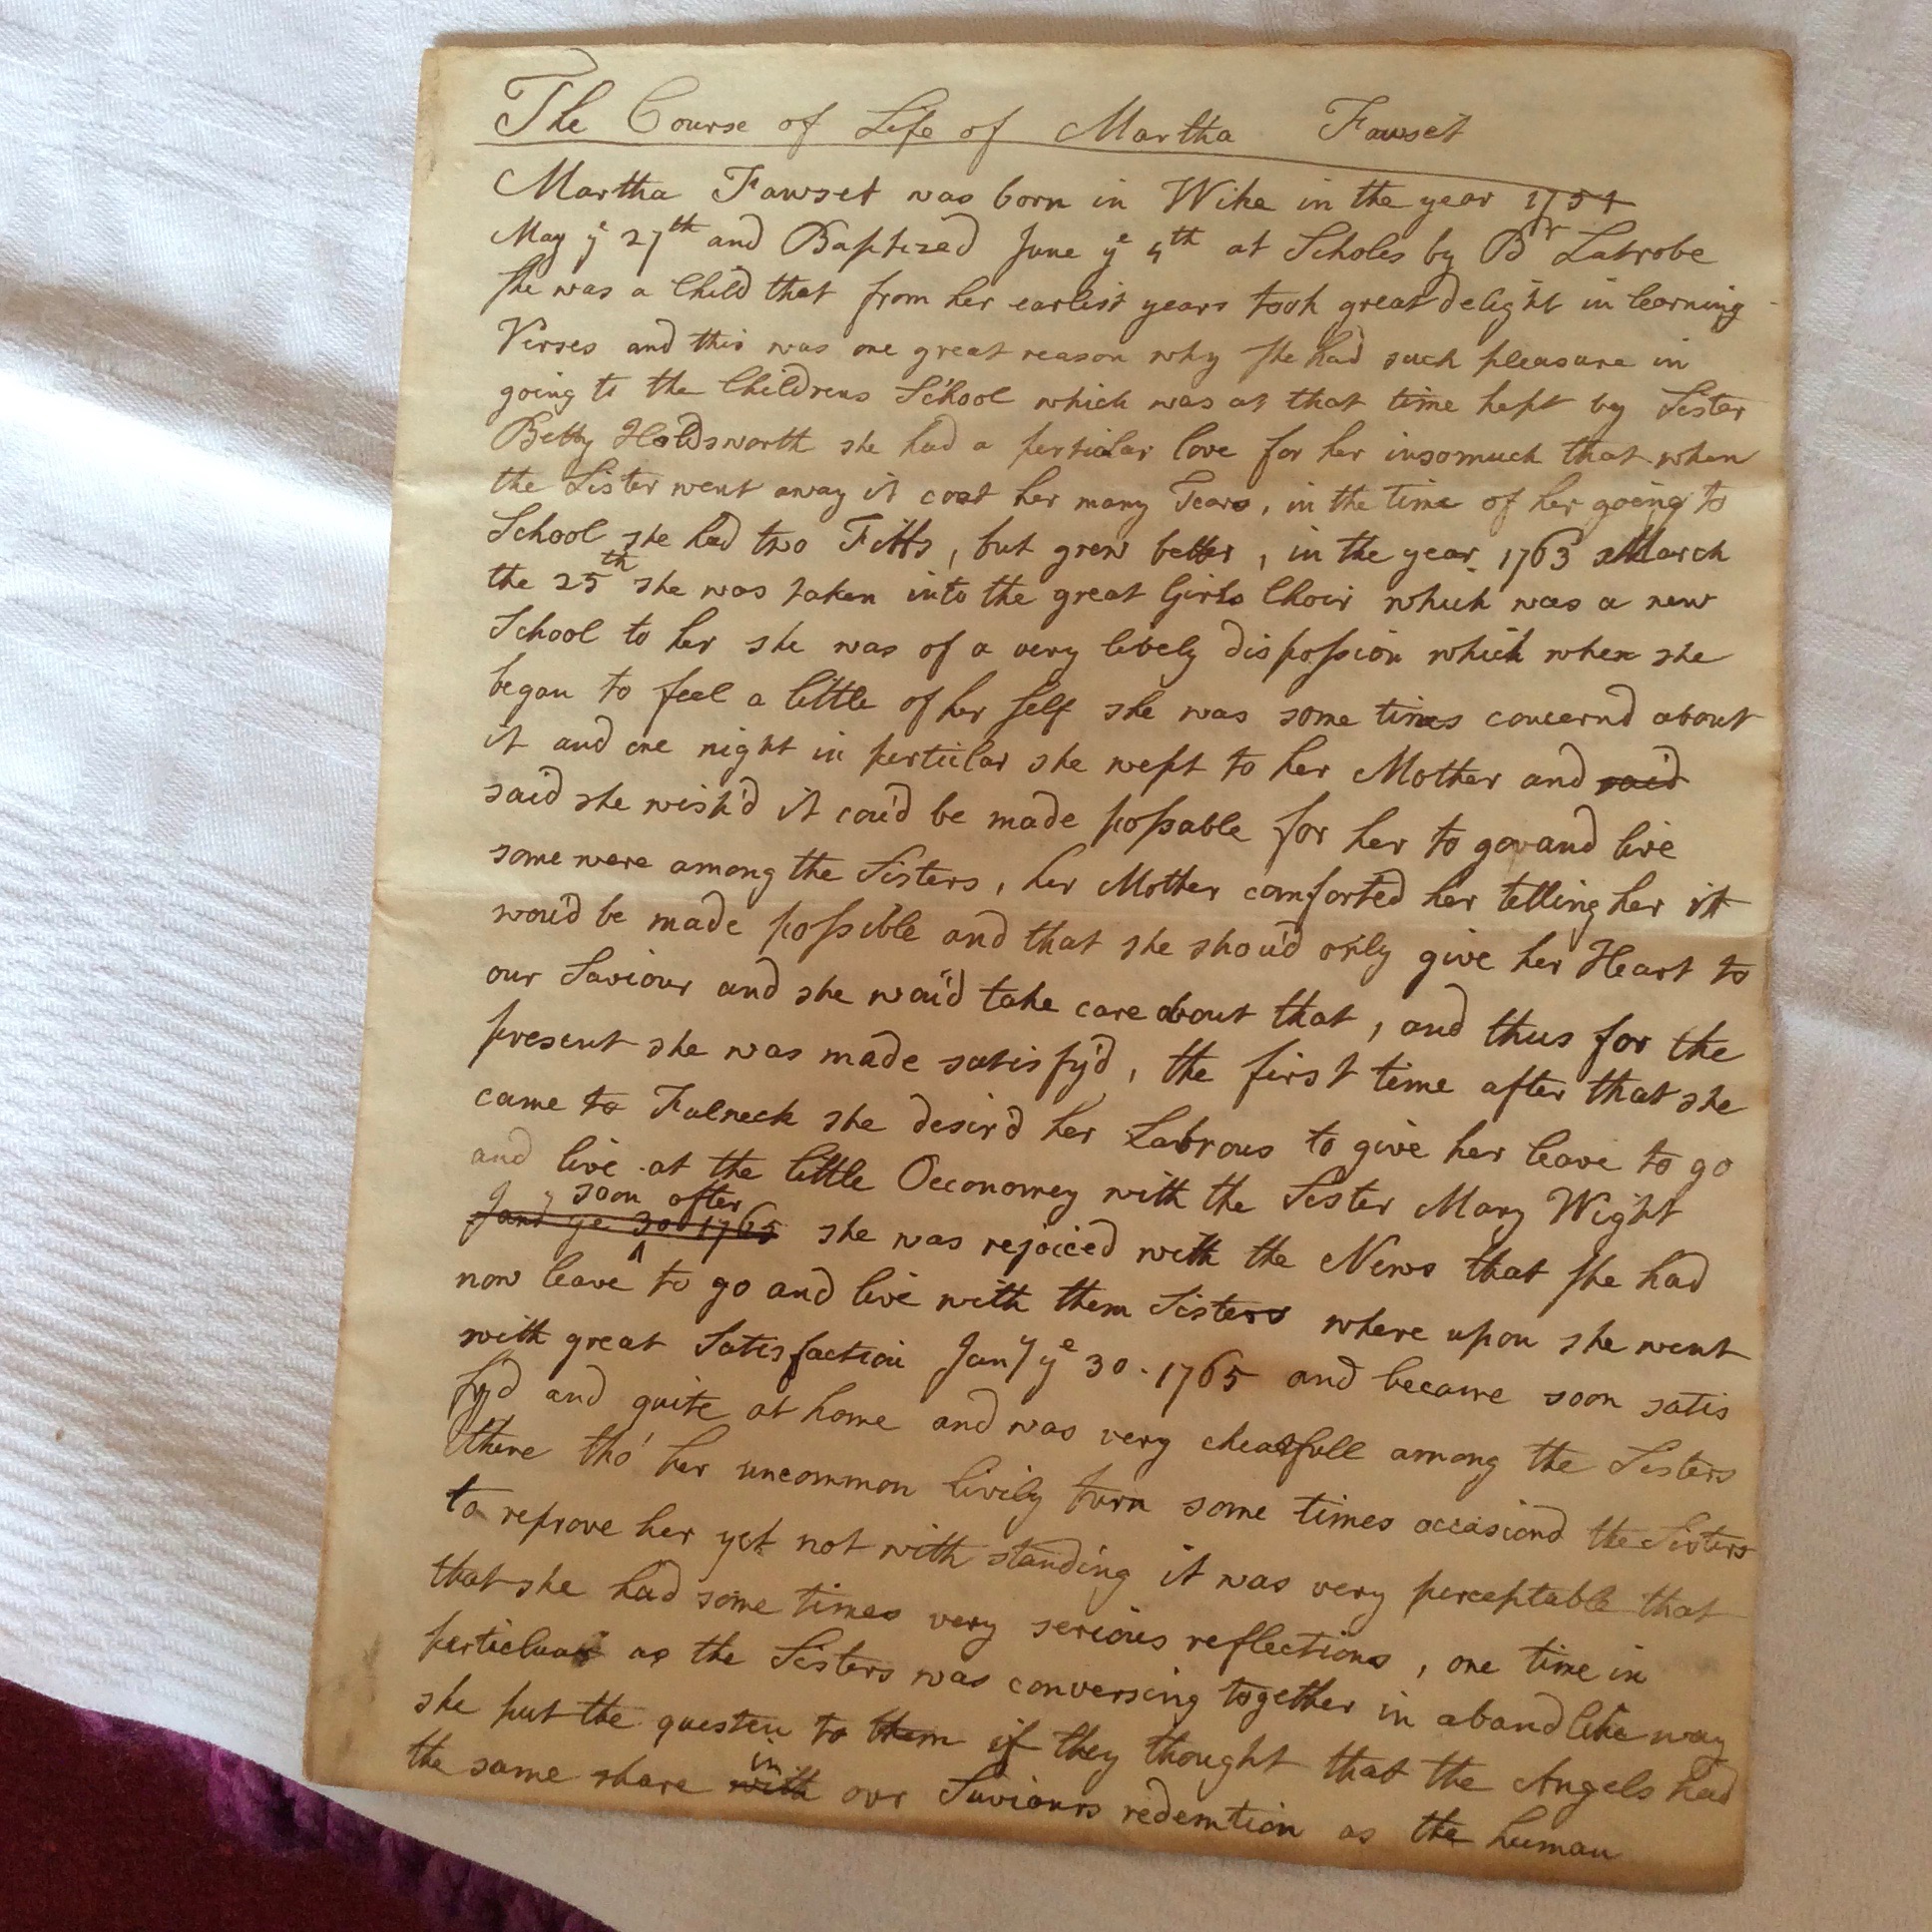 The Course of Life of Martha Fawset
Martha Fawset was born in Wike in the year 1754
May ye 27th and Baptized June ye 4th at Scholes by Br Latrobe
she was a Child that from her earlist years took great delight in learning
Verses and this was one great reason why she had such pleasure in
going to the Childrens School which was at that time kept by Sister
Betty Holdsworth she had a perticlar love for her insomuch that when
the Sister went away it cost her many Tears, in the time of her going to
School she had two Fitts, but grew better, in the year 1763 March
the 25th she was taken into the great Girls Choir which was a new
School to her she was of a very lively dispossion which when she
began to feel a little of her self she was some times concernd about
it and one night in perticlar she wept to her Mother and said
said she wish'd it cou'd be made possable for her to go and live
some were among the Sisters, her Mother comforted her telling her it
wou'd be made possible and that she shou'd only give her Heart to
our Saviour and she wou'd take care about that, and thus for the
present she was made satisfy'd, the first time after that she
came to Fulneck she desir'd her Labrous to give her leave to go
and live at the little Oeconomey with the Sister Mary Wight
soon after
Jany ye 30 1765 she was rejoiced with the News that she had
now leave to go and live with them Sisters where upon she went
with great Satisfaction Jany ye 30. 1765 and became soon satis
fyd and quite at home and was very chearfull among the Sisters
there tho' her uncommon livily turn some times occasiond the Sisters
to reprove her yet not with standing it was very perceptable that
that she had some times very serious reflections, one time in
perticluar as the Sisters was conversing together in a band like way
she put the questin to them if they thought that the Angels had
in
the same share with our Saviours redemtion as the human